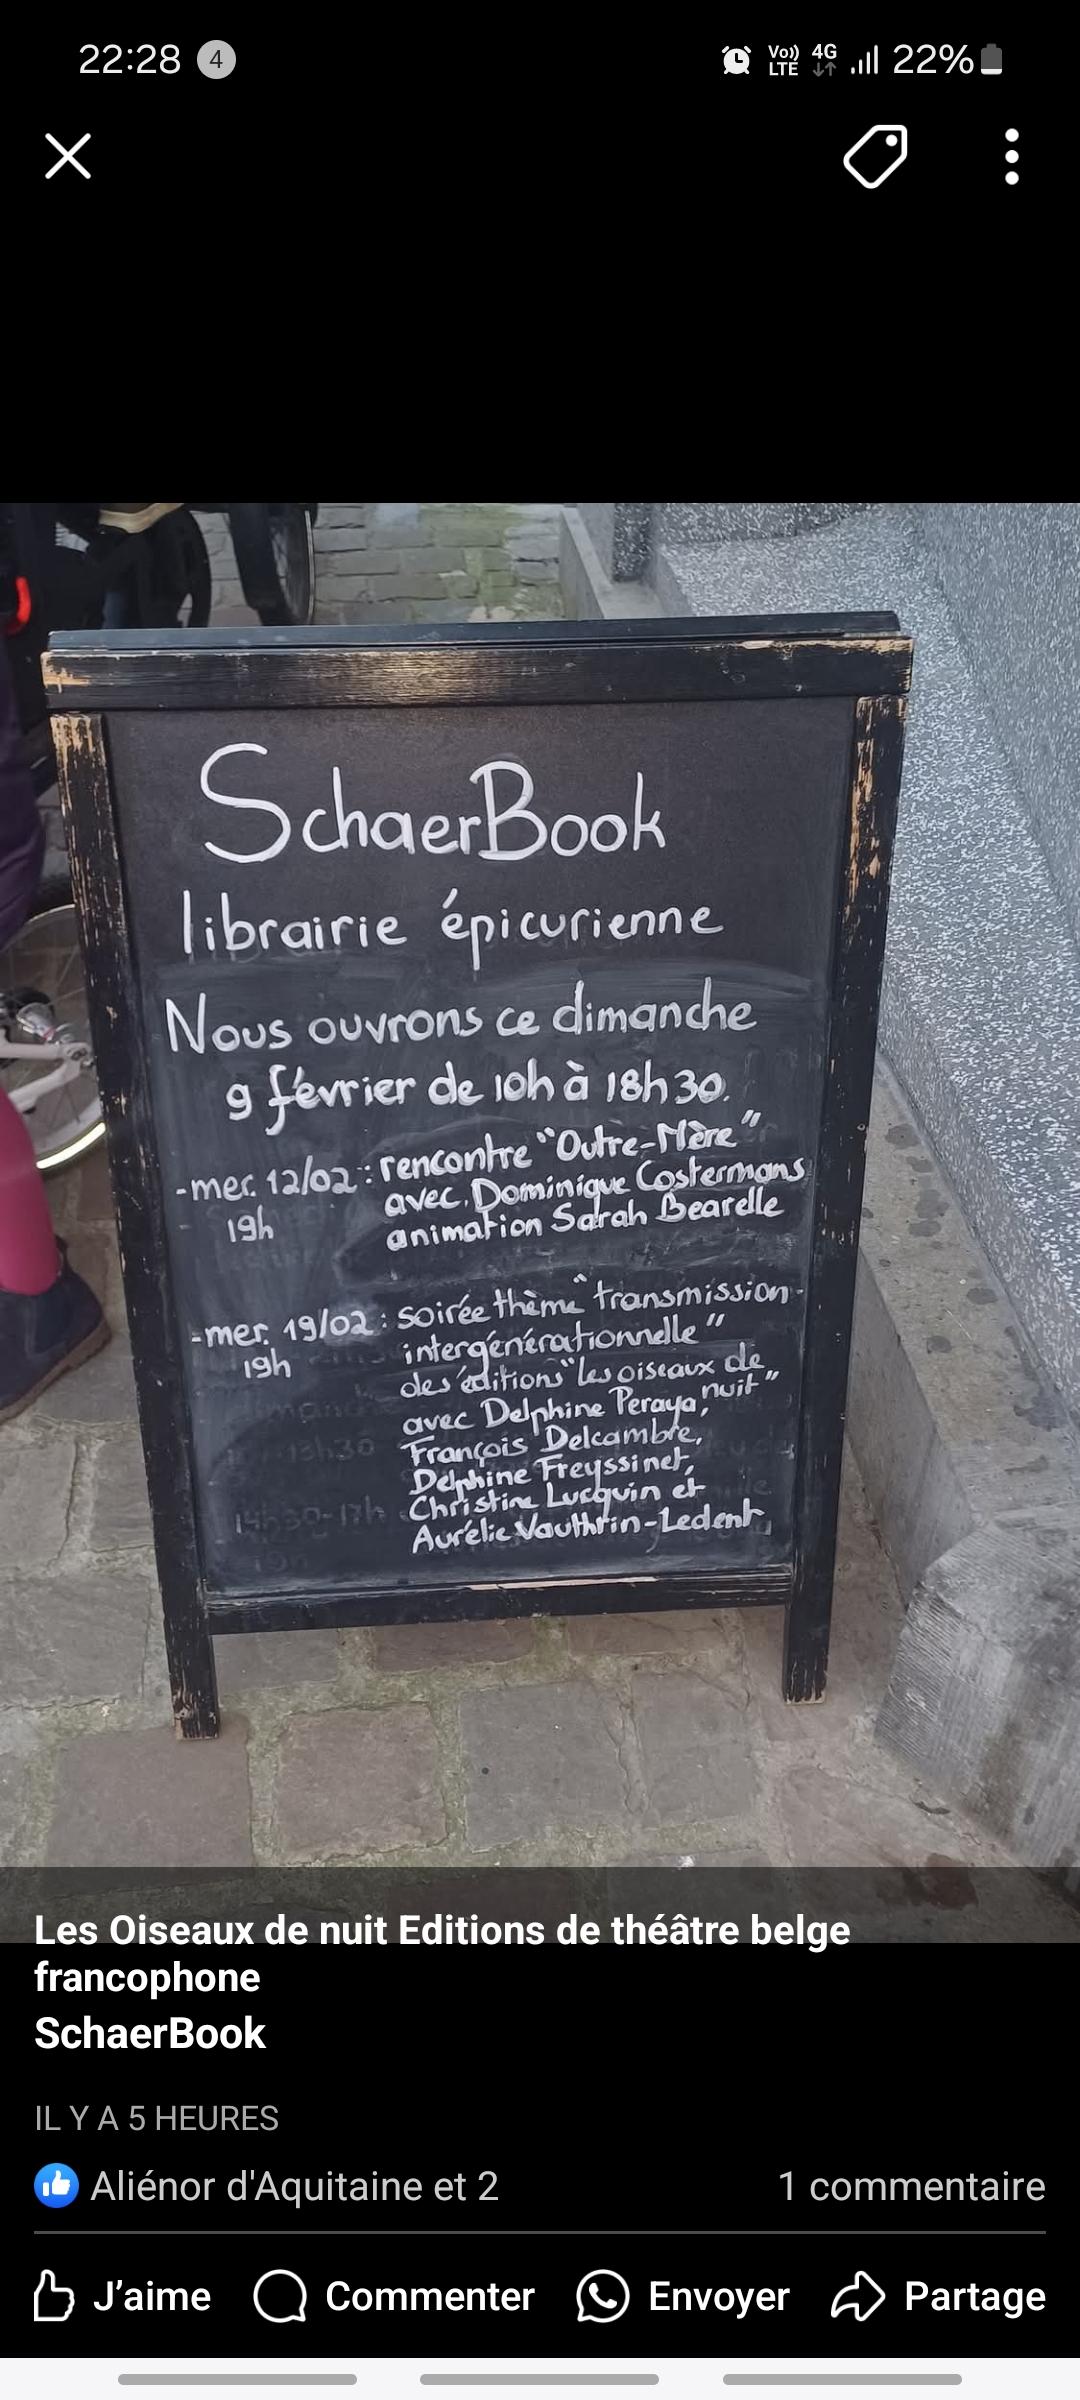 22:28 4 Vo)) LTE 4G 22%
SchaerBook
librairie épicurienne
Nous ouvrons ce dimanche
9 février de 10h à 18h30.
-mer. 12/02 : rencontre "Outre-Mère"
19h avec Dominique Costermans
animation Sarah Bearelle
-mer. 19/02 : soirée thème "transmission
19h intergénérationnelle"
des éditions "les oiseaux de
nuit"
avec Delphine Peraya,
François Delcambre,
Delphine Freyssinet,
Christine Lucquin et
Aurélie Vauthrin-Ledent
dimanche
13h30
14h30-17h
19h
Les Oiseaux de nuit Editions de théâtre belge
francophone
SchaerBook
IL Y A 5 HEURES
Aliénor d'Aquitaine et 2 1 commentaire
J’aime Commenter Envoyer Partage